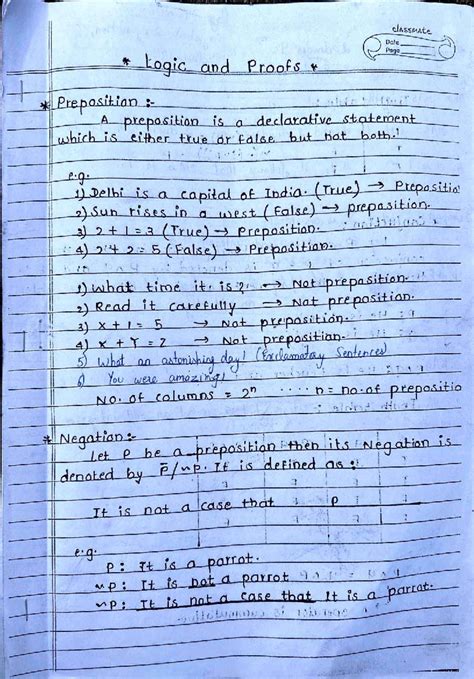 classmate
Date
Page
* Logic and Proofs *
* Preposition :-
A preposition is a declarative statement
which is either true or false but not both.
e.g.
1) Delhi is a capital of India. (True) → Prepositio
2) Sun rises in a west (False) → preposition.
3) 2 + 1 = 3 (True) → Preposition.
4) 2 + 2 = 5 (False) → Preposition.
1) What time it is? → Not preposition.
2) Read it carefully → Not preposition.
3) x + 1 = 5 → Not preposition.
4) x + Y = Z → Not preposition.
5) What an astonishing day! (Exclamatay Sentences)
6) You were amazing!
No. of columns = 2ⁿ ···· n = no. of prepositio
* Negation :-
Let P be a preposition then its Negation is
denoted by p̄/~p. It is defined as :
It is not a case that P
e.g.
P: It is a parrot.
~P: It is not a parrot
~P: It is not a case that it is a parrot.